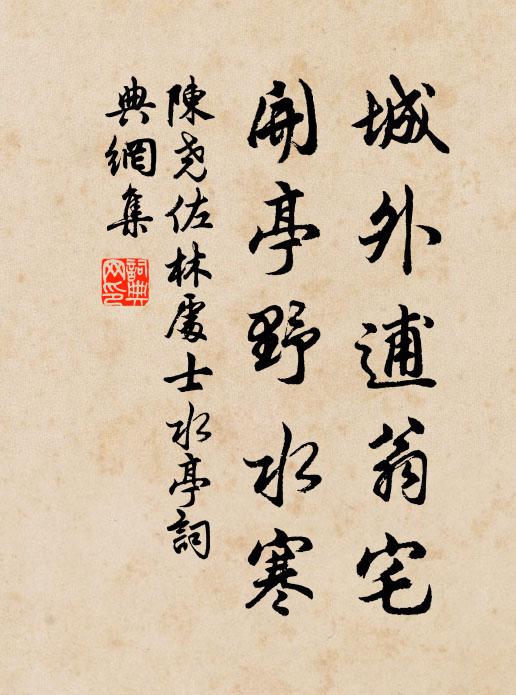 城外逋翁宅
開亭野水寒
陳尧佐林處士水亭詞
典網集
詞典
网印